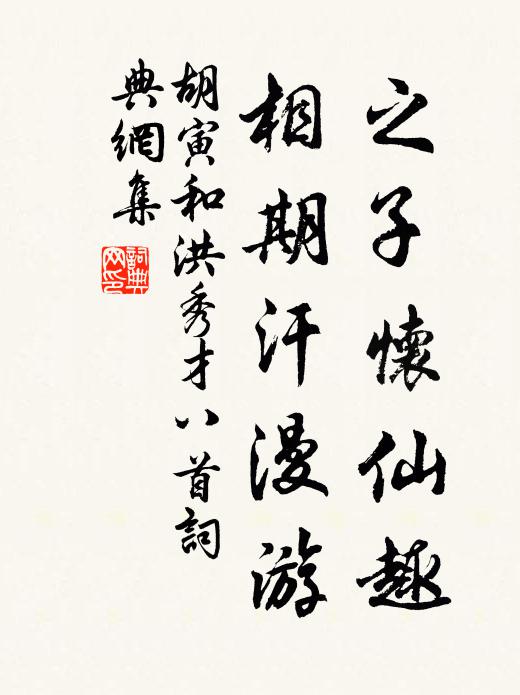 之子懷仙趣
相期汗漫游
胡寅和洪秀才八首詞
典網集
詞典
网印